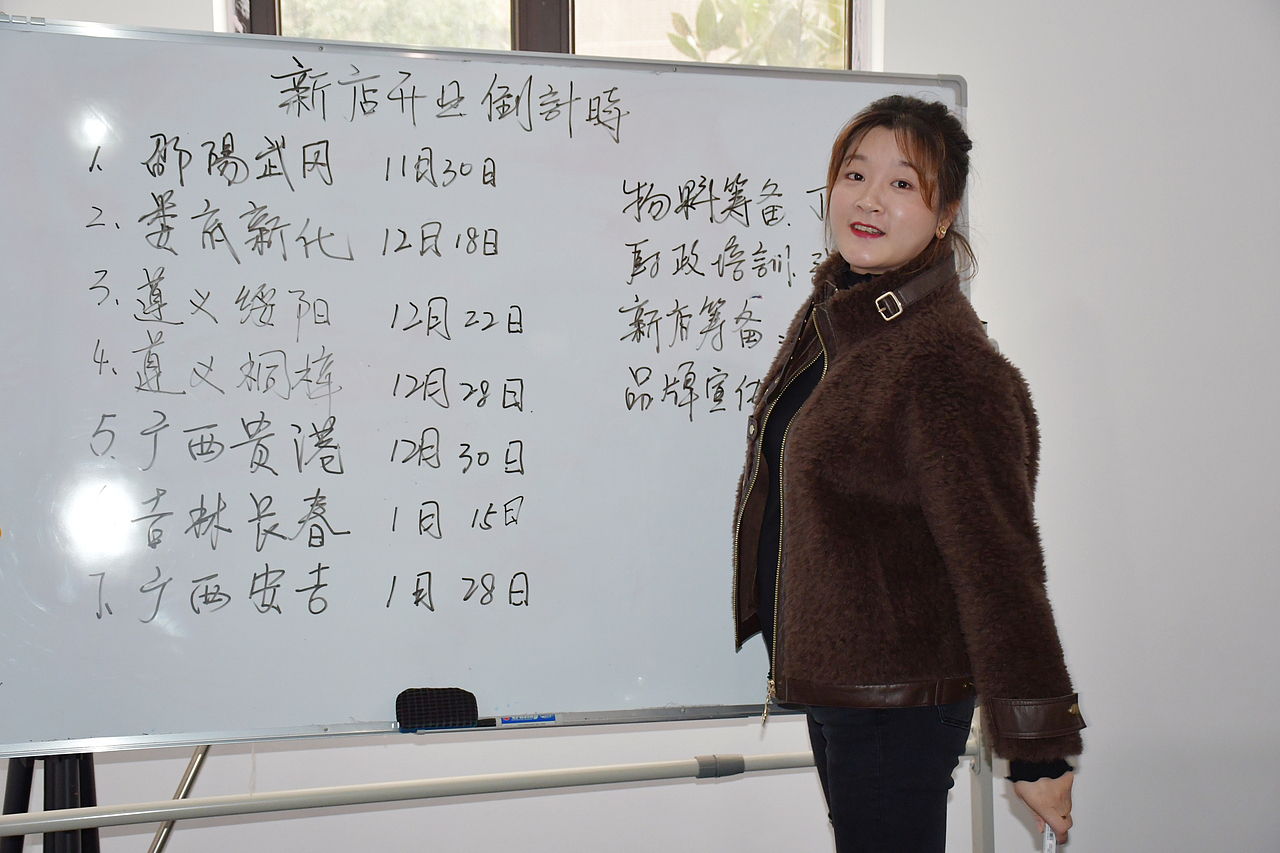 新店开业倒計時
1. 邵陽武冈 11月30日
2. 娄底新化 12月18日
3. 遵义绥阳 12月22日
4. 遵义桐梓 12月28日
5. 广西貴港 12月30日
吉林长春 1月15日
7. 广西安吉 1月28日
物料筹备
財政培訓
新店筹备
品牌宣传